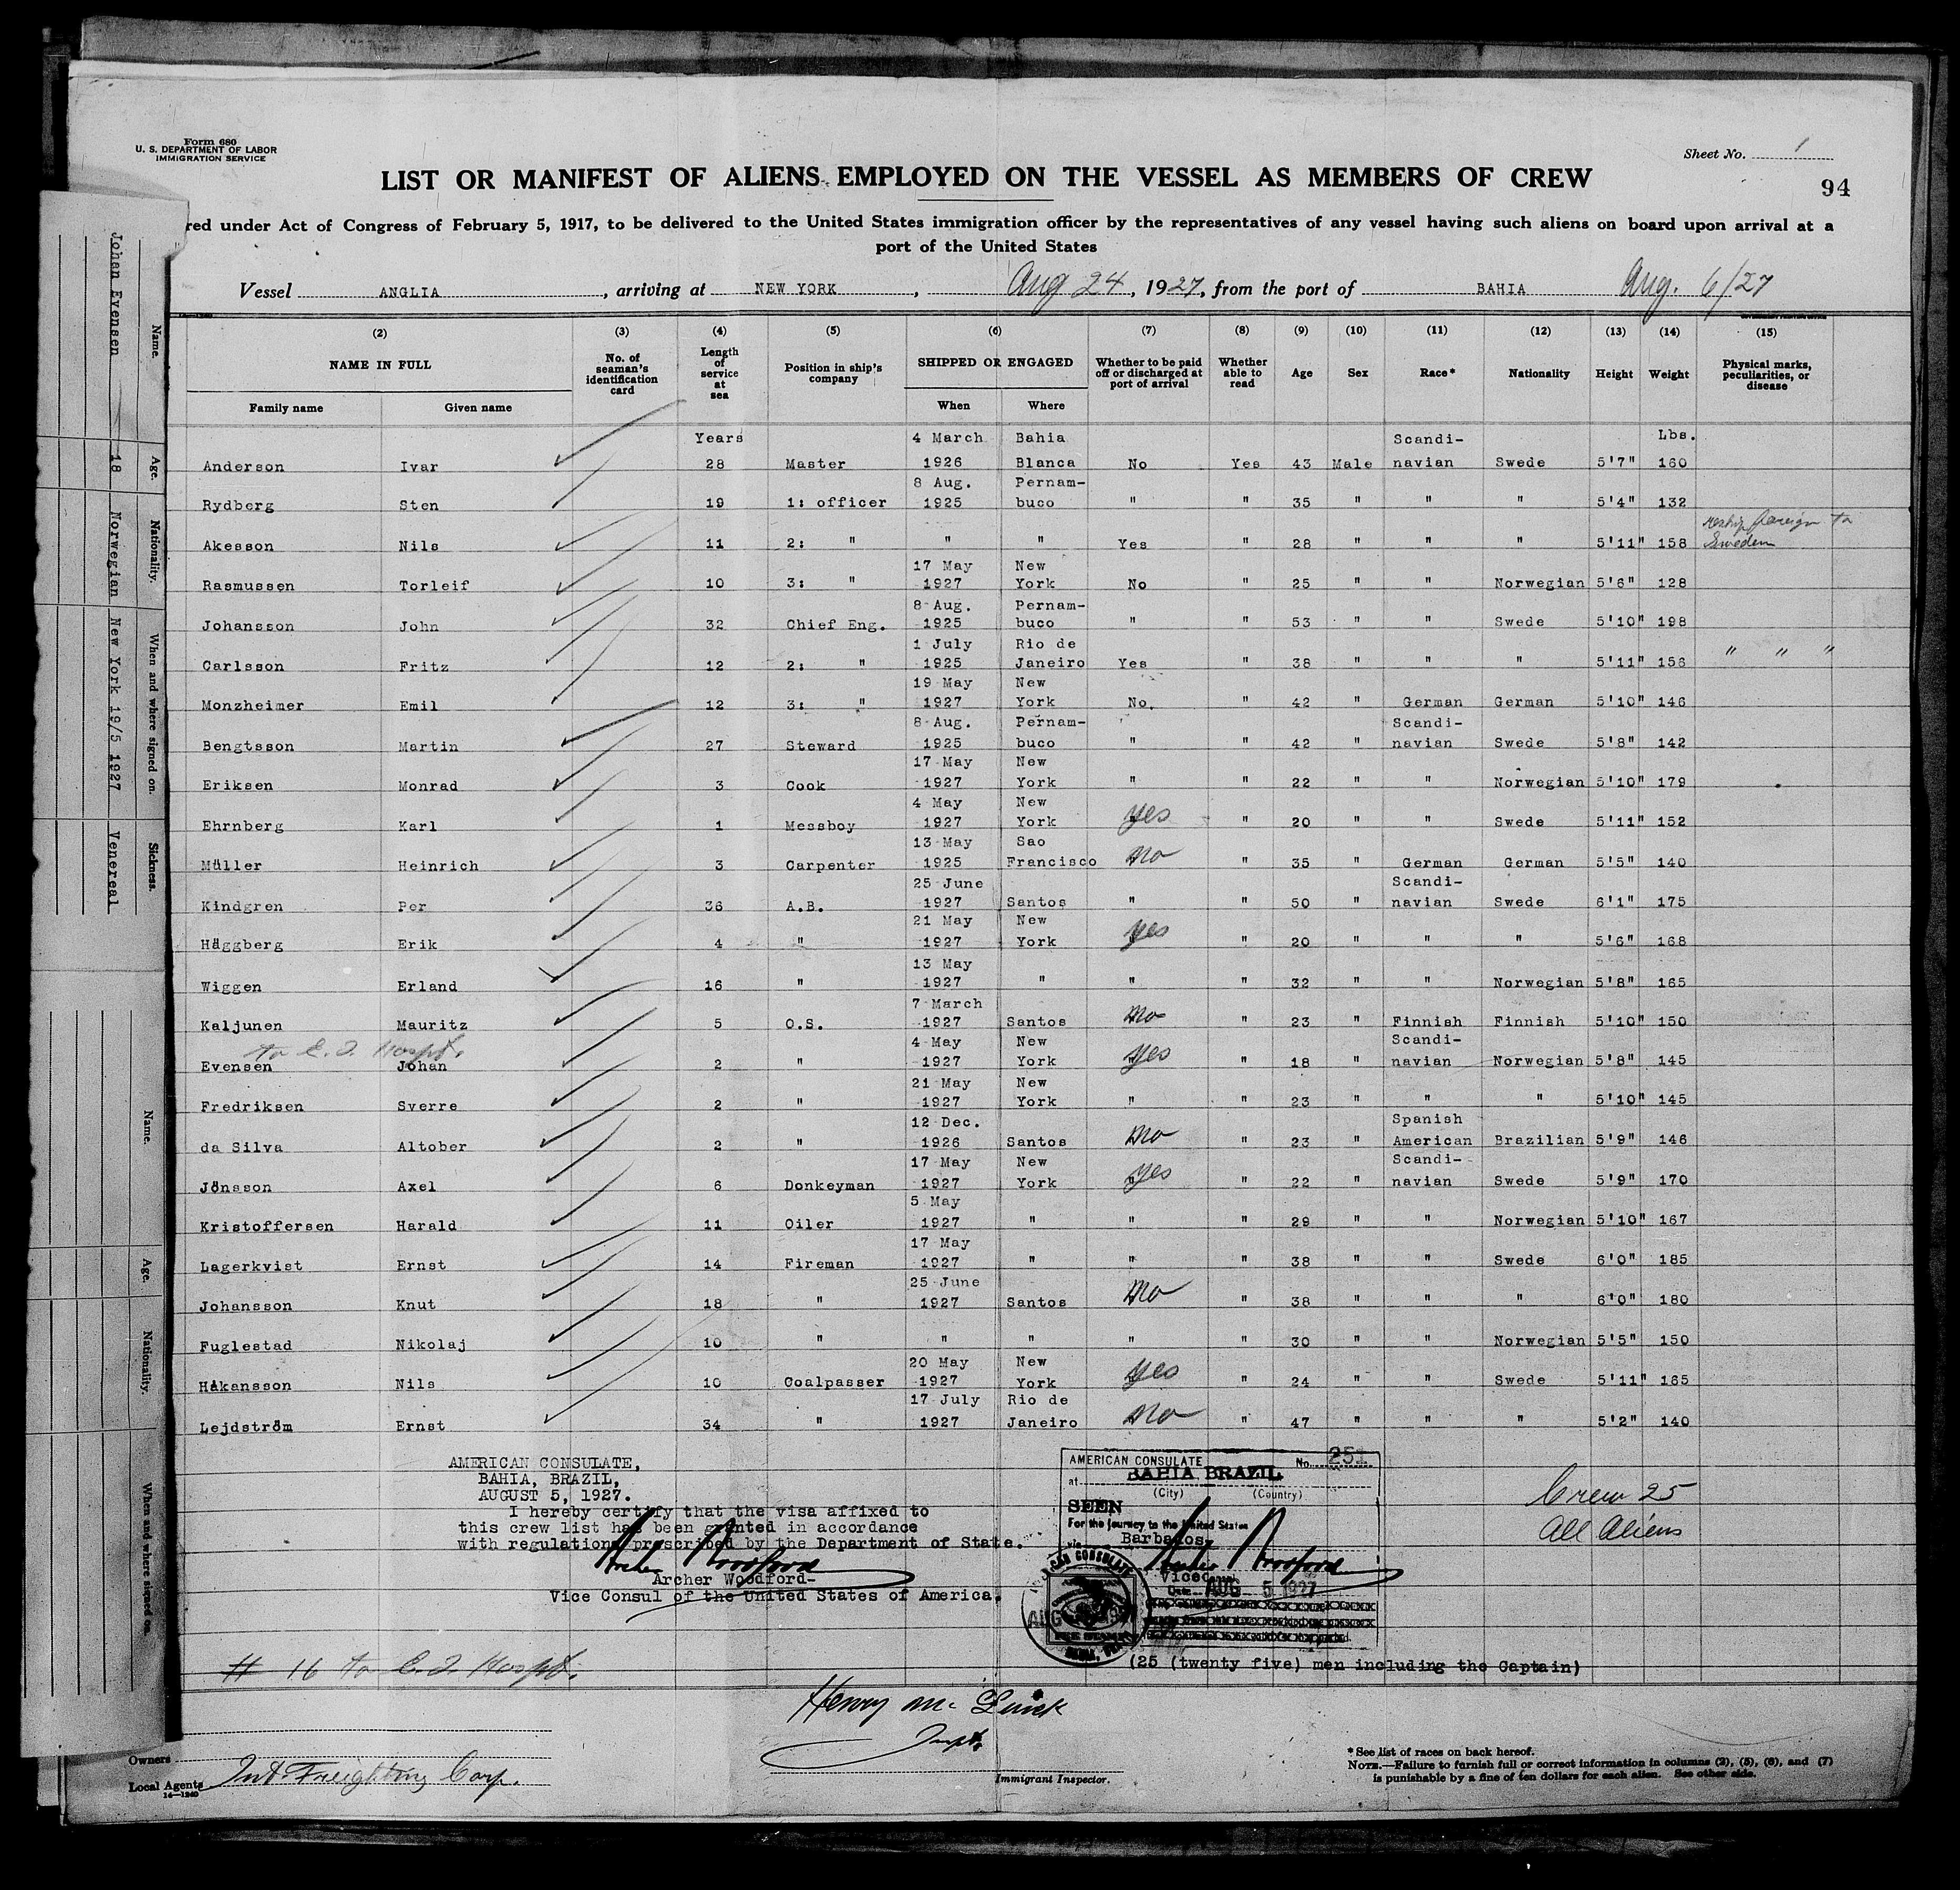 Form 680
U. S. DEPARTMENT OF LABOR
IMMIGRATION SERVICE
Sheet No. 1
LIST OR MANIFEST OF ALIENS EMPLOYED ON THE VESSEL AS MEMBERS OF CREW
94
red under Act of Congress of February 5, 1917, to be delivered to the United States immigration officer by the representatives of any vessel having such aliens on board upon arrival at a
port of the United States
Vessel ANGLIA, arriving at NEW YORK, Aug 24, 1927, from the port of BAHIA Aug. 6/27
(2) (3) (4) (5) (6) (7) (8) (9) (10) (11) (12) (13) (14) (15)
NAME IN FULL
Family name Given name
No. of seaman's identification card
Length of service at sea
Position in ship's company
SHIPPED OR ENGAGED
When Where
Whether to be paid off or discharged at port of arrival
Whether able to read
Age
Sex
Race*
Nationality
Height
Weight
Physical marks, peculiarities, or disease
Years 4 March Bahia Scandi- Lbs.
Anderson Ivar 28 Master 1926 Blanca No Yes 43 Male navian Swede 5'7" 160
8 Aug. Pernam-
Rydberg Sten 19 1: officer 1925 buco " " 35 " " " 5'4" 132
reship foreign to
Akesson Nils 11 2: " " " Yes " 28 " " " 5'11" 158 Sweden
17 May New
Rasmussen Torleif 10 3: " 1927 York No " 25 " " Norwegian 5'6" 128
8 Aug. Pernam-
Johansson John 32 Chief Eng. 1925 buco " " 53 " " Swede 5'10" 198
1 July Rio de
Carlsson Fritz 12 2: " 1925 Janeiro Yes " 38 " " " 5'11" 156 " " "
19 May New
Monzheimer Emil 12 3: " 1927 York No. " 42 " German German 5'10" 146
8 Aug. Pernam- Scandi-
Bengtsson Martin 27 Steward 1925 buco " " 42 " navian Swede 5'8" 142
17 May New
Eriksen Monrad 3 Cook 1927 York " " 22 " " Norwegian 5'10" 179
4 May New
Ehrnberg Karl 1 Messboy 1927 York Yes " 20 " " Swede 5'11" 152
13 May Sao
Müller Heinrich 3 Carpenter 1925 Francisco No " 35 " German German 5'5" 140
25 June Scandi-
Kindgren Per 36 A.B. 1927 Santos " " 50 " navian Swede 6'1" 175
21 May New
Häggberg Erik 4 " 1927 York Yes " 20 " " " 5'6" 168
13 May
Wiggen Erland 16 " 1927 " " " 32 " " Norwegian 5'8" 165
7 March
Kaljunen Mauritz 5 O.S. 1927 Santos No " 23 " Finnish Finnish 5'10" 150
to E. I. Hospt. 4 May New Scandi-
Evensen Johan 2 " 1927 York Yes " 18 " navian Norwegian 5'8" 145
21 May New
Fredriksen Sverre 2 " 1927 York " " 23 " " " 5'10" 145
12 Dec. Spanish
da Silva Altober 2 " 1926 Santos No " 23 " American Brazilian 5'9" 146
17 May New Scandi-
Jönsson Axel 6 Donkeyman 1927 York Yes " 22 " navian Swede 5'9" 170
5 May
Kristoffersen Harald 11 Oiler 1927 " " " 29 " " Norwegian 5'10" 167
17 May
Lagerkvist Ernst 14 Fireman 1927 " " " 38 " " Swede 6'0" 185
25 June
Johansson Knut 18 " 1927 Santos No " 38 " " " 6'0" 180
Fuglestad Nikolaj 10 " " " " " 30 " " Norwegian 5'5" 150
20 May New
Håkansson Nils 10 Coalpasser 1927 York Yes " 24 " " Swede 5'11" 165
17 July Rio de
Lejdström Ernst 34 " 1927 Janeiro No " 47 " " " 5'2" 140
AMERICAN CONSULATE,
BAHIA, BRAZIL,
AUGUST 5, 1927.
I hereby certify that the visa affixed to
this crew list has been granted in accordance
with regulations prescribed by the Department of State.
Archer Woodford
Archer Woodford-
Vice Consul of the United States of America.
AMERICAN CONSULATE No. 251
at BAHIA BRAZIL
(City) (Country)
SEEN
For the journey to the United States
via Barbados
Archer Woodford
Vice Consul
Date AUG 5 1927
Crew 25
All Aliens
(25 (twenty five) men including the Captain)
# 16 to E. I. Hospt.
Henry Mc
Inspt.
Immigrant Inspector.
Owners
Local Agents Int. Freighting Corp.
14—1240
*See list of races on back hereof.
NOTE.—Failure to furnish full or correct information in columns (2), (5), (6), and (7)
is punishable by a fine of ten dollars for each alien. See other side.
Name. Age. Nationality. When and where signed on. Sickness.
Johan Evensen 18 Norwegian New York 19/5 1927 Venereal
Name. Age. Nationality. When and where signed on.